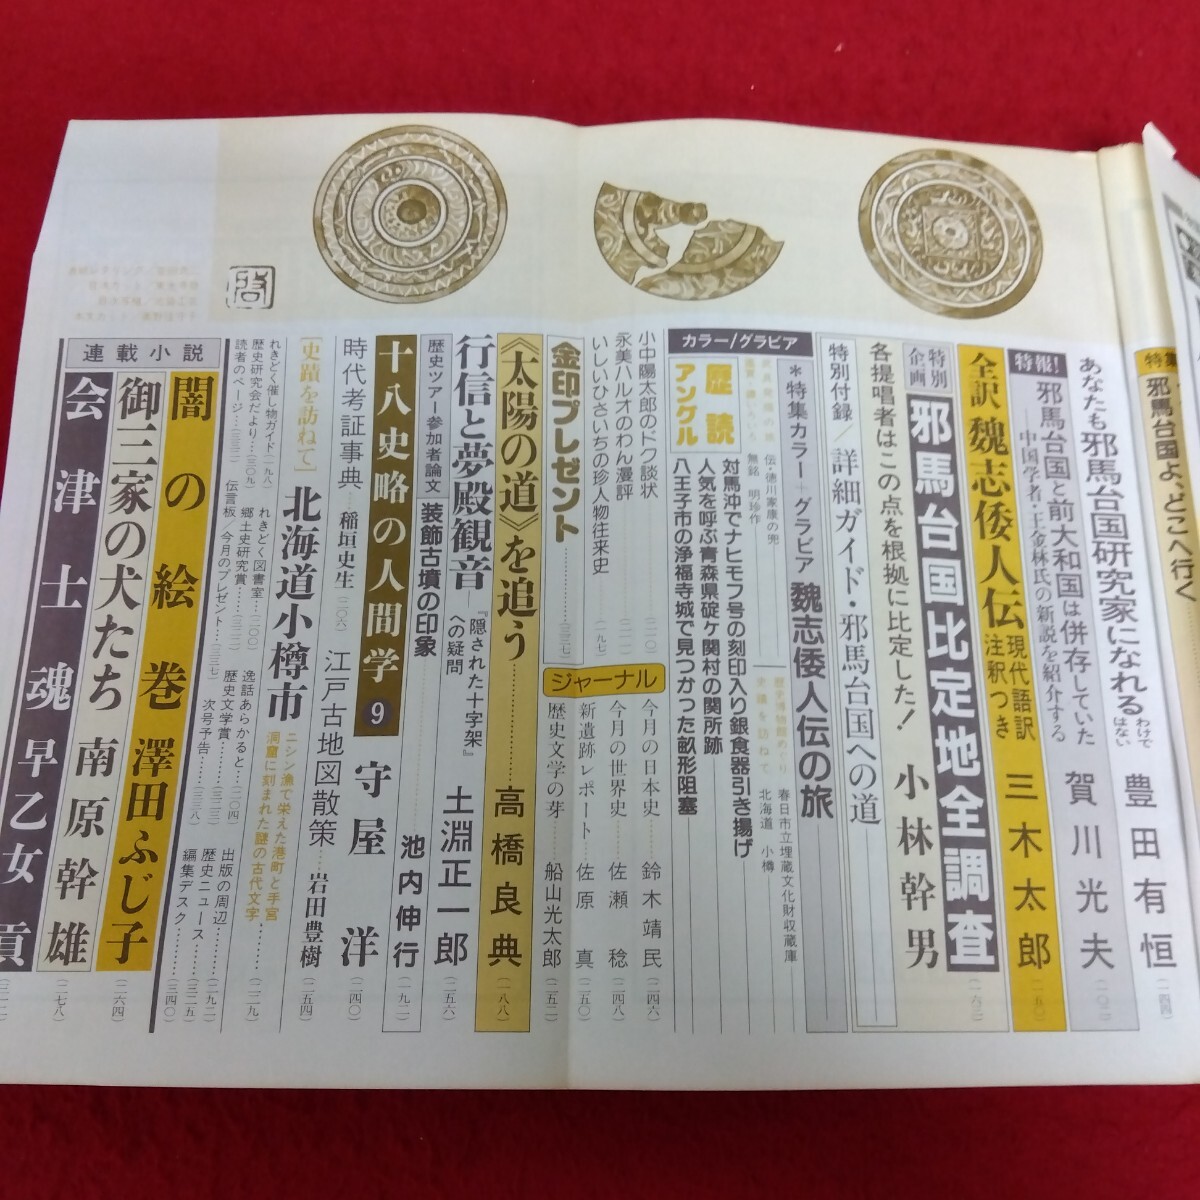 特集
邪馬台国よ、どこへ行く
あなたも邪馬台国研究家になれる
わけではない
豊田有恒
(一四四)
特報!
邪馬台国と前大和国は併存していた
―中国学者・王金林氏の新説を紹介する
賀川光夫
全訳 魏志倭人伝
現代語訳
注釈つき
三木太郎
(一五〇)
特別企画
邪馬台国比定地全調査
各提唱者はこの点を根拠に比定した!
小林幹男
(一六三)
特別付録/詳細ガイド・邪馬台国への道
カラー/グラビア
*特集カラー+グラビア 魏志倭人伝の旅
伝・徳川家康の兜
無銘 明珍作
春日市立埋蔵文化財収蔵庫
北海道 小樽
歴読アングル
対馬沖でナヒモフ号の刻印入り銀食器引き揚げ
人気を呼ぶ青森県碇ヶ関村の関所跡
八王子市の浄福寺城で見つかった畝形阻塞
小中陽太郎のドク談状
(二一〇)
永美ハルオのわん漫評
いしいひさいちの珍人物往来史
(一九七)
ジャーナル
今月の日本史
鈴木靖民
(二四六)
今月の世界史
佐瀬 稔
(二四八)
新遺跡レポート
佐原 真
(二五〇)
歴史文学の芽
船山光太郎
(二五二)
金印プレゼント
《太陽の道》を追う
高橋良典
(一八八)
行信と夢殿観音―『隠された十字架』への疑問
土淵正一郎
(二五六)
歴史ツアー参加者論文
装飾古墳の印象
池内伸行
(一九二)
十八史略の人間学 9
守屋 洋
(二四〇)
時代考証事典
稲垣史生
(二〇六)
江戸古地図散策
岩田豊樹
(二五四)
[史蹟を訪ねて]
北海道小樽市
ニシン漁で栄えた港町と手宮
洞窟に刻まれた謎の古代文字
(二二九)
れきどく催し物ガイド
(一九八)
れきどく図書室
(二〇〇)
逸話あらかると
(二〇四)
出版の周辺
(二九二)
歴史研究会だより
(三〇九)
郷土史研究賞
(三二二)
歴史文学賞
(三二三)
歴史ニュース
(三二五)
読者のページ
(三三二)
伝言板/今月のプレゼント
(三三七)
次号予告
(三三八)
編集デスク
(三四〇)
連載小説
闇の絵巻
澤田ふじ子
(二六四)
御三家の犬たち
南原幹雄
(二七八)
会津士魂
早乙女 貢
(三一二)